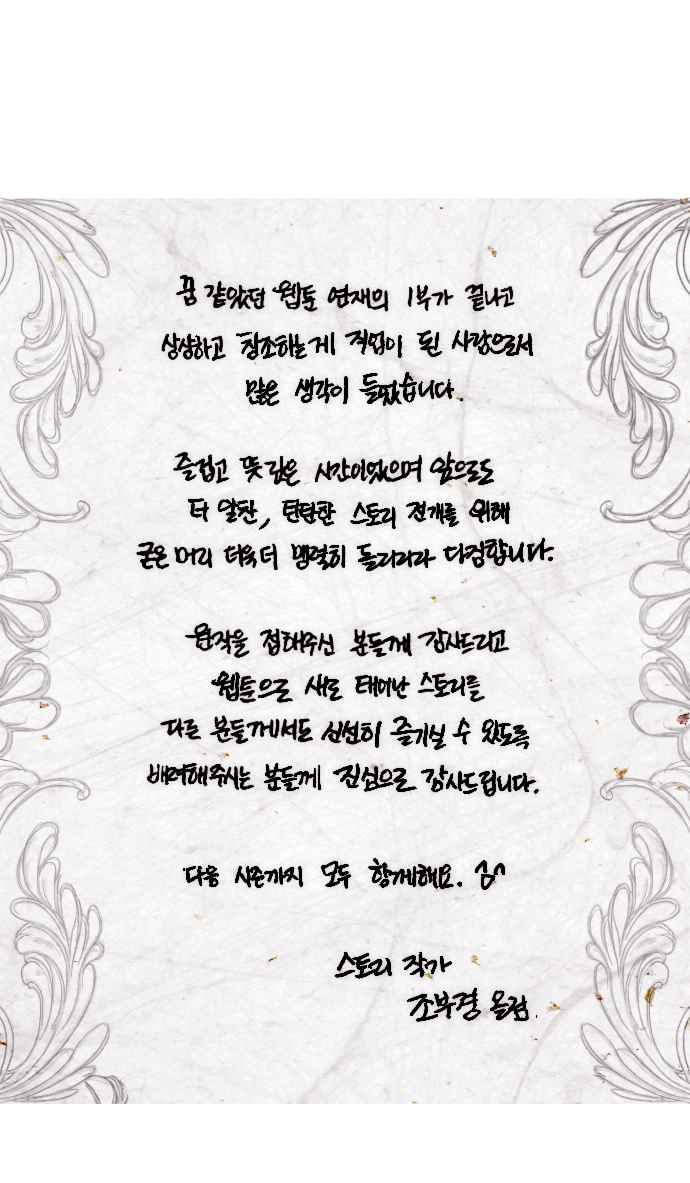 꿈 같았던 웹툰 연재의 1부가 끝나고
상상하고 창조하는게 직업이 된 사람으로서
많은 생각이 들었습니다.
즐겁고 뜻깊은 시간이었으며 앞으로도
더 알찬, 탄탄한 스토리 전개를 위해
굳은 머리 더욱더 맹렬히 돌리리라 다짐합니다.
원작을 접해주신 분들께 감사드리고
웹툰으로 새로 태어난 스토리를
다른 분들께서도 신선히 즐기실 수 있도록
배려해주시는 분들께 진심으로 감사드립니다.
다음 시즌까지 모두 함께해요. ^^
스토리 작가
조부경 올림.